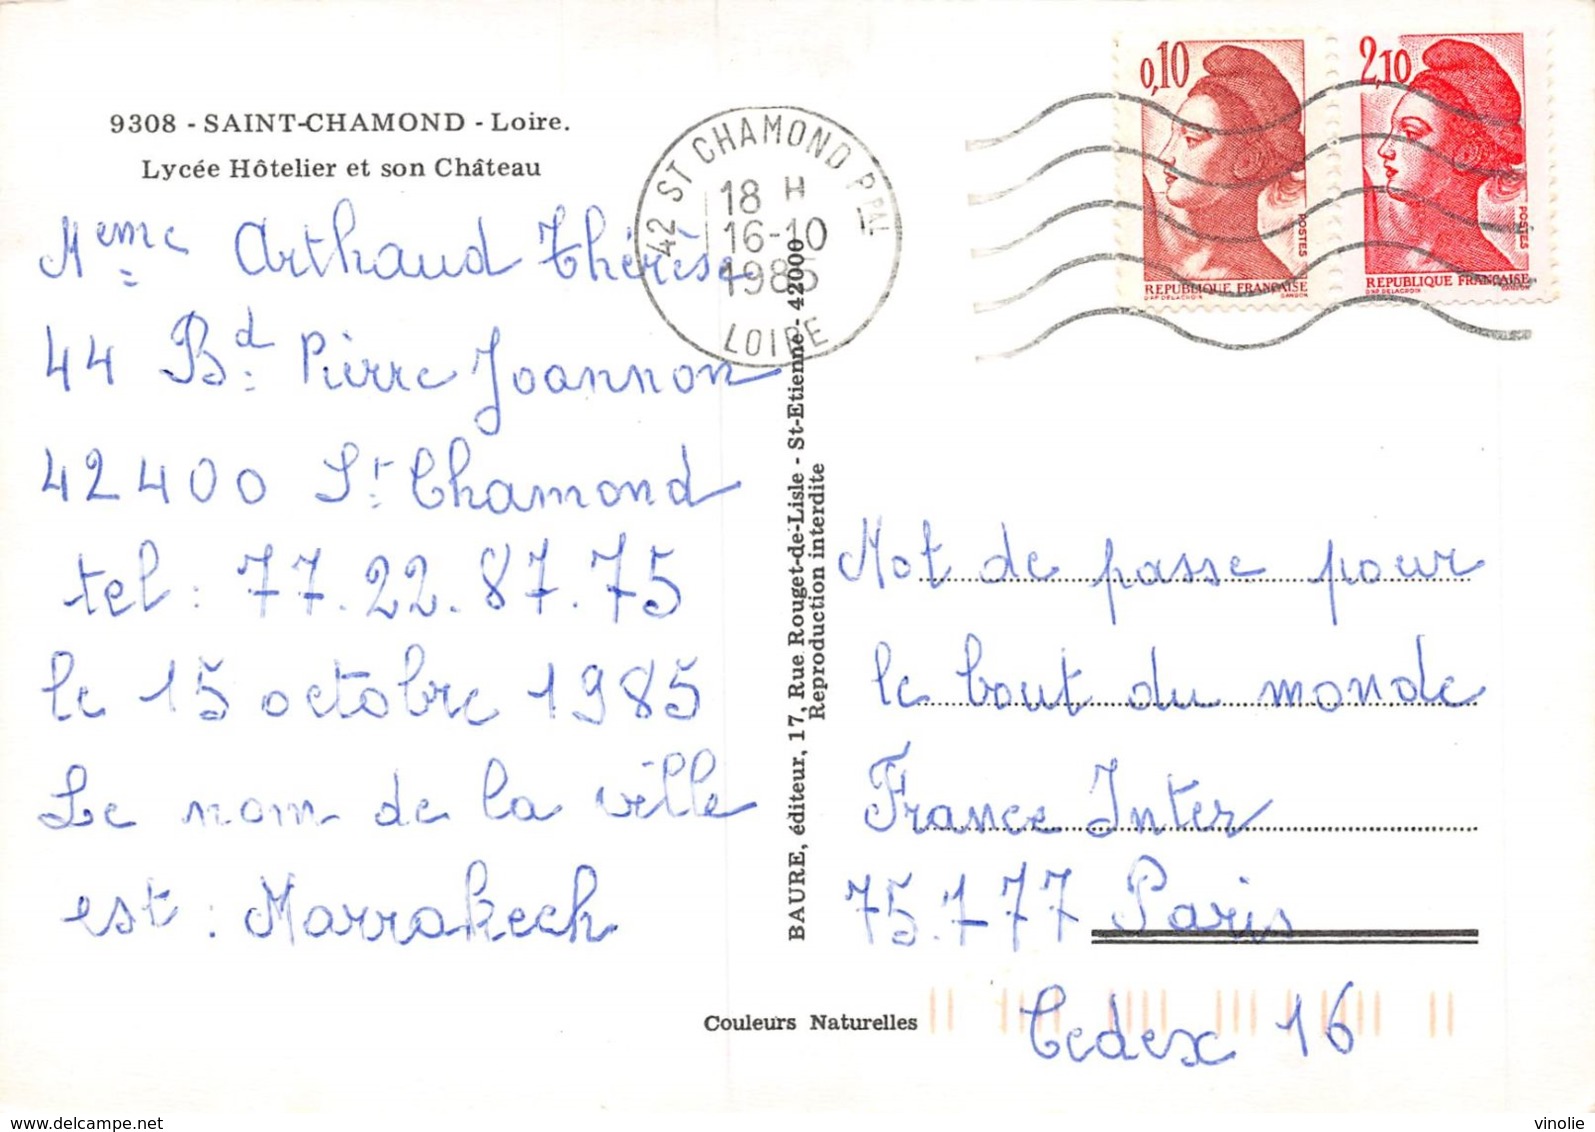 9308 - SAINT-CHAMOND - Loire.
Lycée Hôtelier et son Château
Meme Arthaud Thérèse
44 Bd Pierre Joannon
42400 St Chamond
tel : 77.22.87.75
le 15 octobre 1985
Le nom de la ville
est : Marrakech
42 ST CHAMOND PPAL
18 H
16-10
1985
LOIRE
BAURE, éditeur, 17, Rue Rouget-de-Lisle - St-Etienne - 42000
Reproduction interdite
Couleurs Naturelles
0,10
POSTES
REPUBLIQUE FRANÇAISE
D'AP. DELACROIX GANDON
2,10
POSTES
REPUBLIQUE FRANÇAISE
D'AP. DELACROIX GANDON
Mot de passe pour
le bout du monde
France Inter
75.177 Paris
Cedex 16
delcampe.net
vinolie